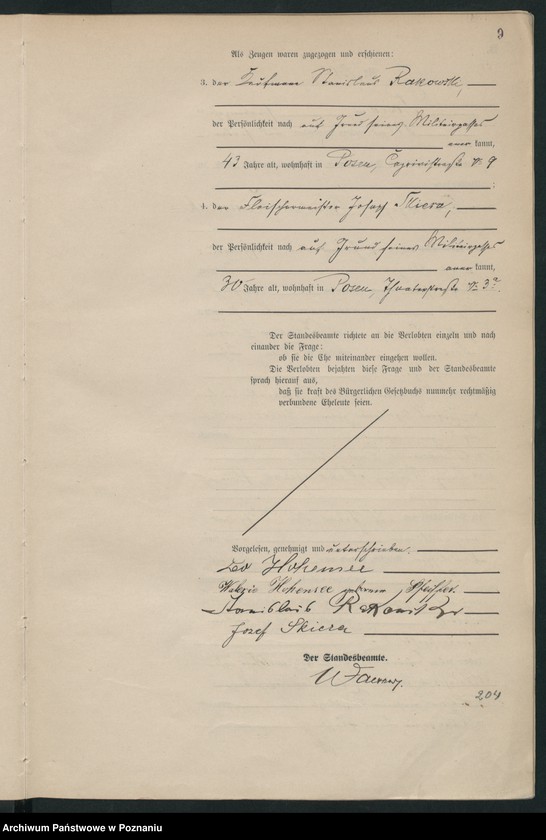 9
Als Zeugen waren zugezogen und erschienen:
3. der Kaufmann Stanislaus Rakowski,
der Persönlichkeit nach auf Grund seines Militärpasses
aner kannt,
43 Jahre alt, wohnhaft in Posen, Caprivistraße No 9
;
4. der Fleischermeister Joseph Skiera,
der Persönlichkeit nach auf Grund seines Militärpasses
aner kannt,
30 Jahre alt, wohnhaft in Posen, Theaterstraße No 3a.
Der Standesbeamte richtete an die Verlobten einzeln und nach
einander die Frage:
ob sie die Ehe miteinander eingehen wollen.
Die Verlobten bejahten diese Frage und der Standesbeamte
sprach hierauf aus,
daß sie kraft des Bürgerlichen Gesetzbuchs nunmehr rechtmäßig
verbundene Eheleute seien.
Vorgelesen, genehmigt und unterschrieben.
Leo Hohensee
Hohensee geborene
Stanislaus
Josef Skiera
Der Standesbeamte.
204
Archiwum Państwowe w Poznaniu